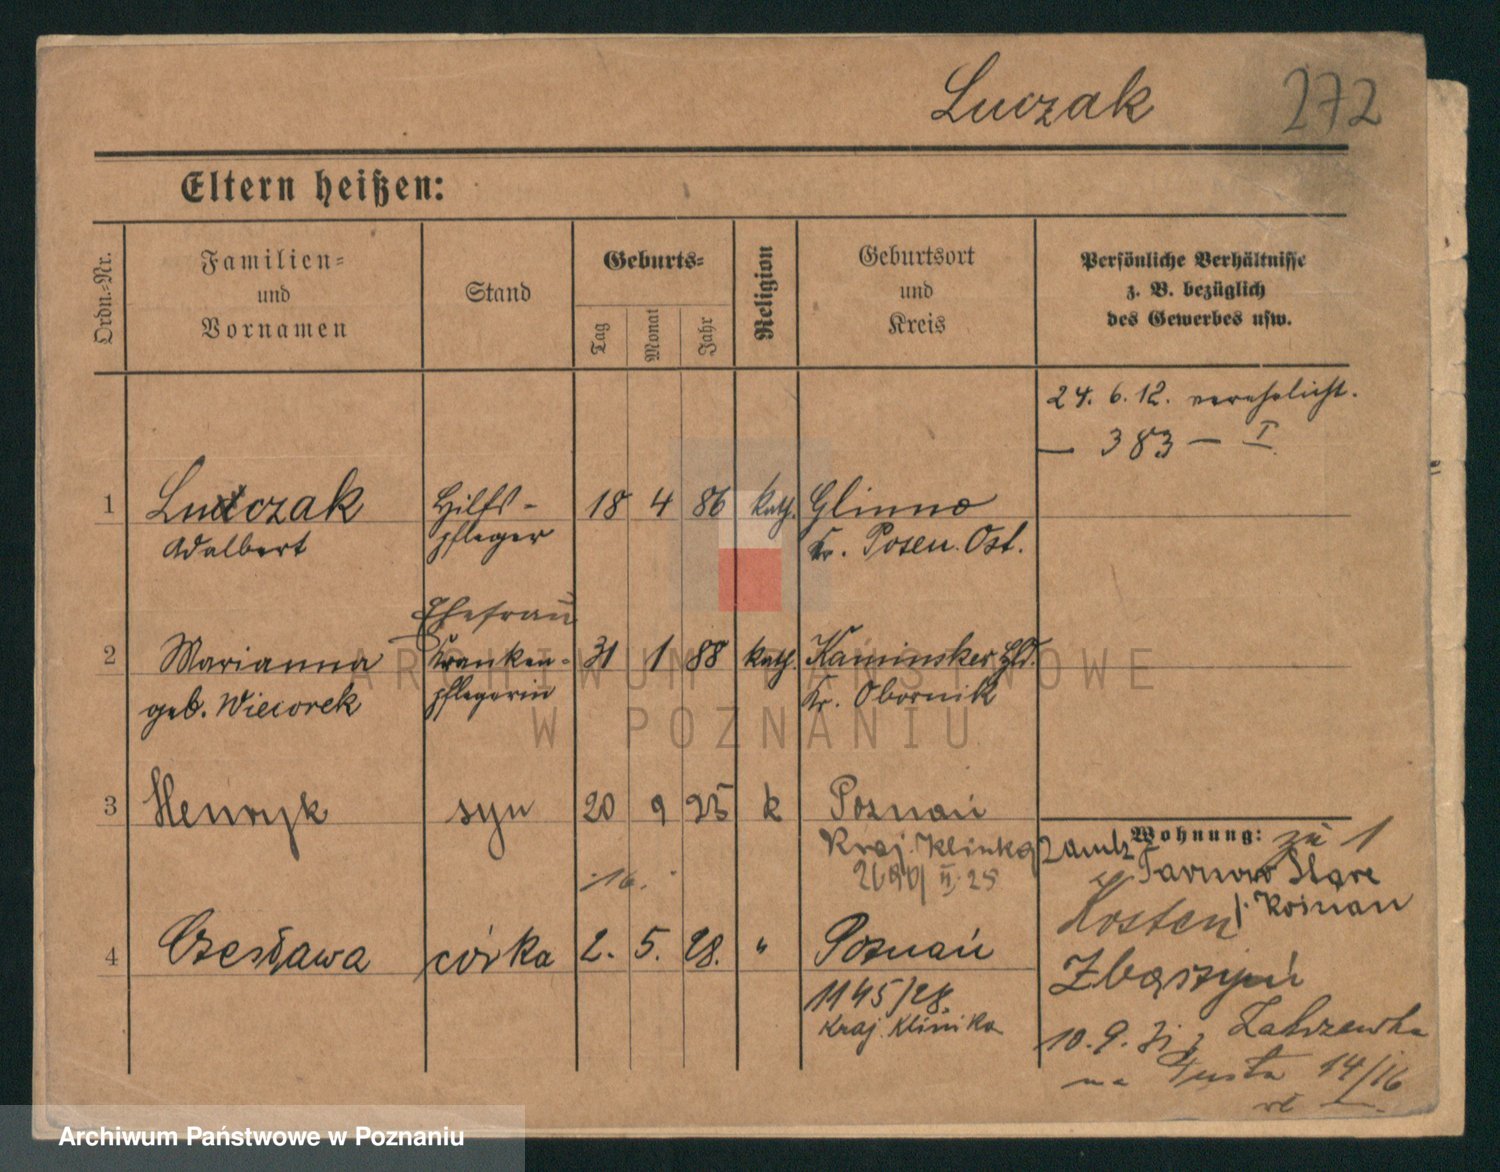 Luczak 272
Eltern heißen:
Ordn.-Nr.
Familien-
und
Vornamen
Stand
Geburts-
Tag
Monat
Jahr
Religion
Geburtsort
und
Kreis
Persönliche Verhältnisse
z. B. bezüglich
des Gewerbes usw.
24. 6. 12. verehelicht.
— 383 — I
1 Luczak Hilfs- 18 4 86 kath. Glinno
Adalbert pfleger Kr. Posen. Ost.
Ehefrau
2 Marianna Kranken- 31 1 88 kath. Kaminsker Hld.
geb. Wiecorek pflegerin Kr. Obornik
3 Henryk syn 20 9 25 k Poznań
Kraj. Klinka
II. 25
Wohnung: zu 1
Tarnowo Stare
Kosten p. Poznań
16.
4 Czesława córka 2. 5. 28. " Poznań
1145/28.
Kraj. Klinika
Zbąszyń
10. 9. Zakrzewka
na 14/16
ARCHIWUM PAŃSTWOWE
W POZNANIU
Archiwum Państwowe w Poznaniu